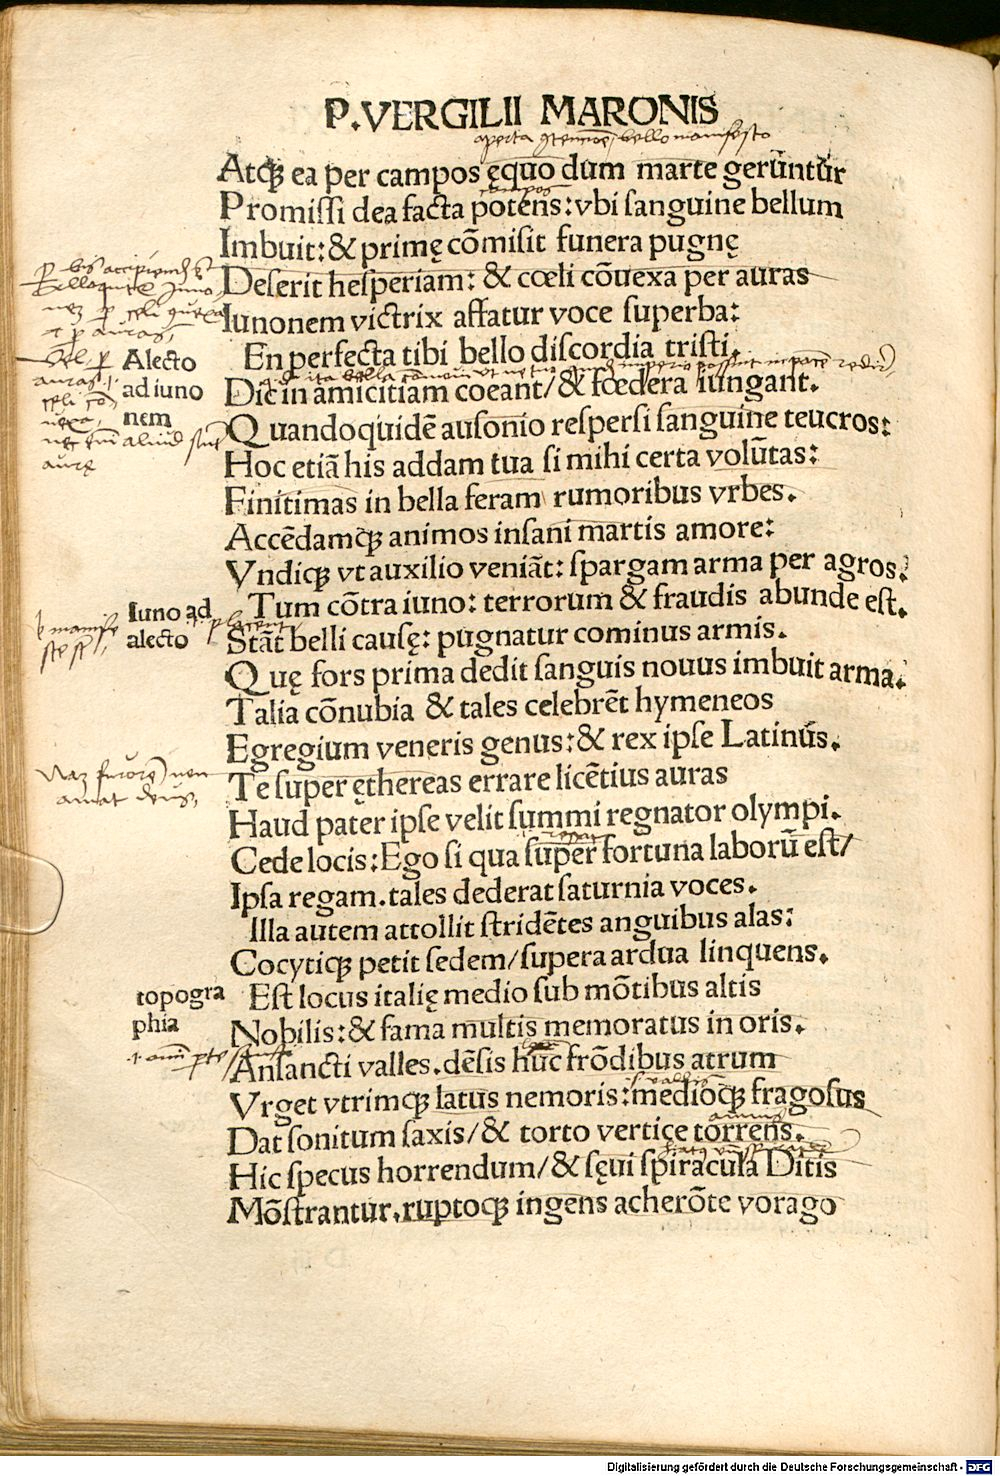 P. VERGILII MARONIS
aperta bello manifesto
Atqꝫ ea per campos ęquo dum marte gerūntūr
campos
Promissi dea facta potens: vbi sanguine bellum
Imbuit: & primę cōmisit funera pugnę
Deserit hesperiam: & cœli cōuexa per auras
Iunonem victrix affatur voce superba:
En perfecta tibi bello discordia tristi.
Alecto
ad iuno
nem
Dic in amicitiam coeant/ & fœdera iungant.
Quandoquidē ausonio respersi sanguine teucros:
Hoc etiā his addam tua si mihi certa volūtas:
Finitimas in bella feram rumoribus vrbes.
Accēdamqꝫ animos insani martis amore:
Vndiqꝫ vt auxilio veniāt: spargam arma per agros.
Iuno ad
alecto
Tum cōtra iuno: terrorum & fraudis abunde est.
Stāt belli causę: pugnatur cominus armis.
Quę fors prima dedit sanguis nouus imbuit arma.
Talia cōnubia & tales celebrēt hymeneos
Egregium veneris genus: & rex ipse Latinus.
Te super ęthereas errare licētius auras
Haud pater ipse velit summi regnator olympi.
Cede locis: Ego si qua super fortuna laborū est/
Ipsa regam. tales dederat saturnia voces.
Illa autem attollit stridētes anguibus alas:
Cocytiqꝫ petit sedem/ supera ardua linquens.
topogra
phia
Est locus italię medio sub mōtibus altis
Nobilis: & fama multis memoratus in oris.
Ansancti valles. dēsis hūc frōdibus atrum
Vrget vtrimqꝫ latus nemoris: medioqꝫ fragosus
Dat sonitum saxis/ & torto vertice torrens.
Hic specus horrendum/ & sęui spiracula Ditis
Mōstrantur. ruptoqꝫ ingens acherōte vorago
Digitalisierung gefördert durch die Deutsche Forschungsgemeinschaft - DFG